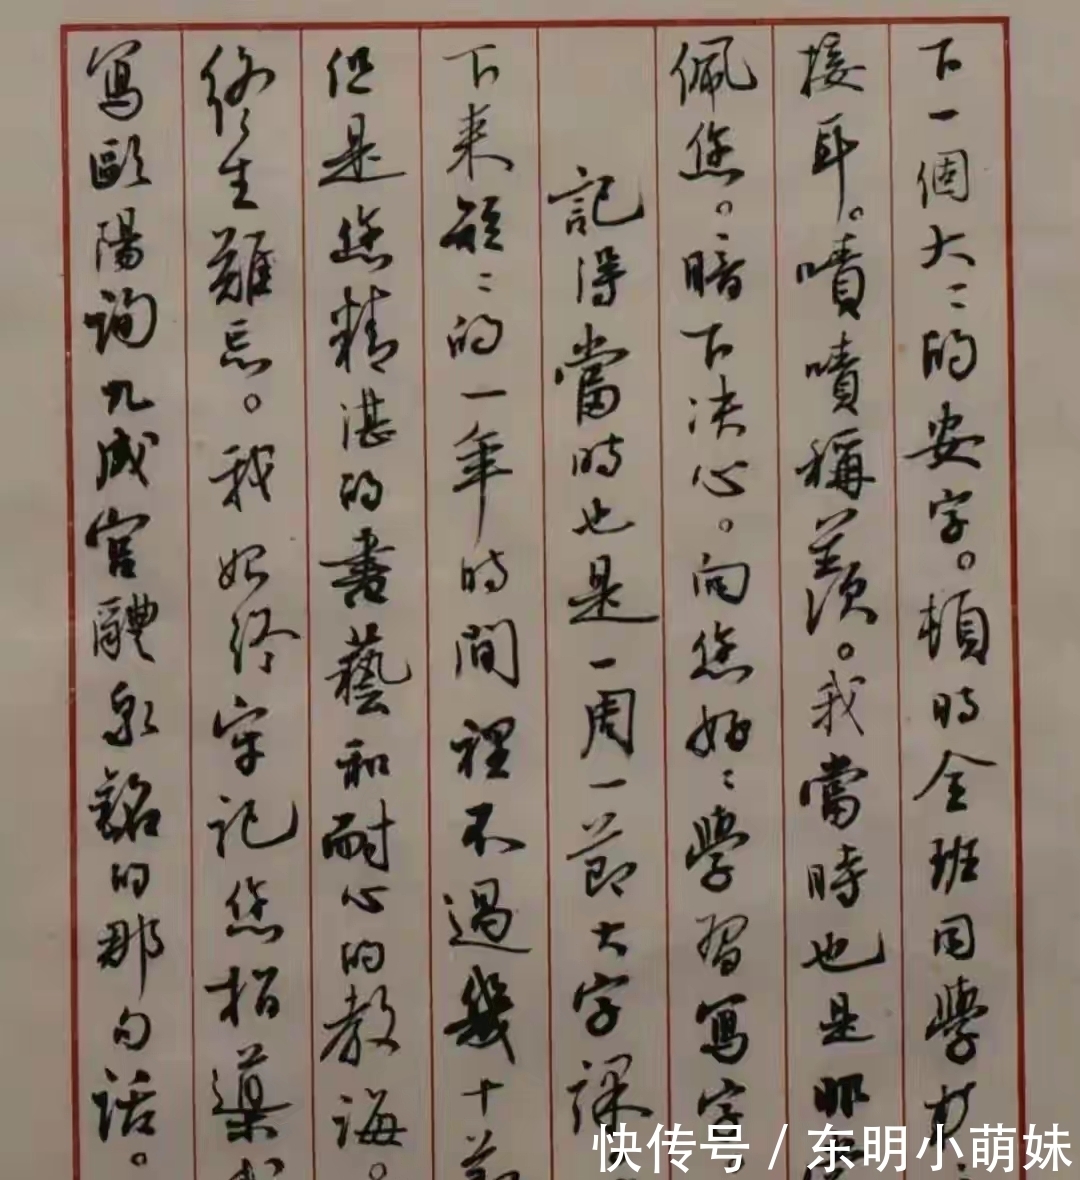 下一個大:的安字。頓時全班同學
接耳。嘖嘖稱羨。我當時也是那
佩您。暗下决心。向您好:學習寫字。
記得當時也是一周一節大字課
下来短:的一年時間裡不過幾十節
但是您精湛的書藝和耐心的教誨。
終生難忘。我始終牢記您指導我
寫歐陽詢九成宫醴泉銘的那句話。
快传号 / 东明小萌妹